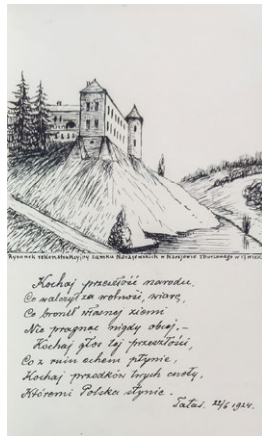 Rysunek rekonstrukcyjny zamku w zburzonego w wieku
Kochaj przeszłość narodu,
Co walczył za wolność, wiarę,
Co bronił własnej ziemi
Nie pragnąc nigdy obcej. –
Kochaj głos tej przeszłości,
Co z ruin echem płynie,
Kochaj przodków twych cnoty,
Któremi Polska słynie.
Tatuś. 22/6 1924.